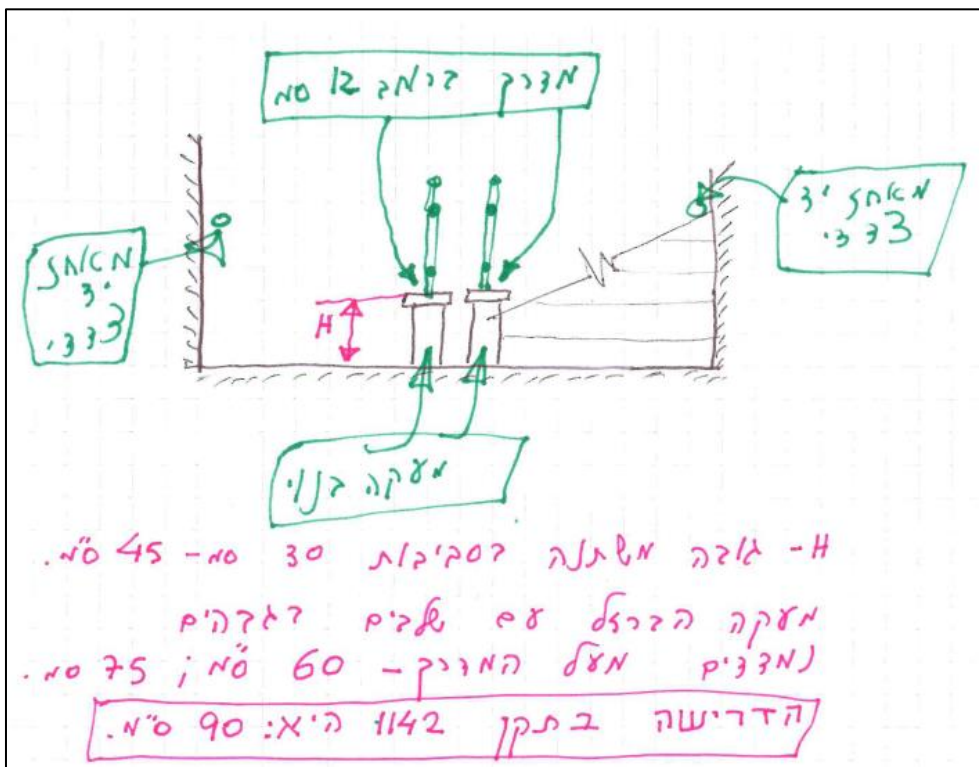 מדרך ברוחב 12 סמ
מאחז יד
צדדי.
מאחז
יד
צדדי.
H
מעקה בנוי
H- גובה משתנה בסביבות 30 סמ - 45 ס"מ.
מעקה הברזל עם שלבים בגבהים
נמדדים מעל המדרך - 60 ס"מ; 75 סמ.
הדרישה בתקן 1142 היא: 90 ס"מ.